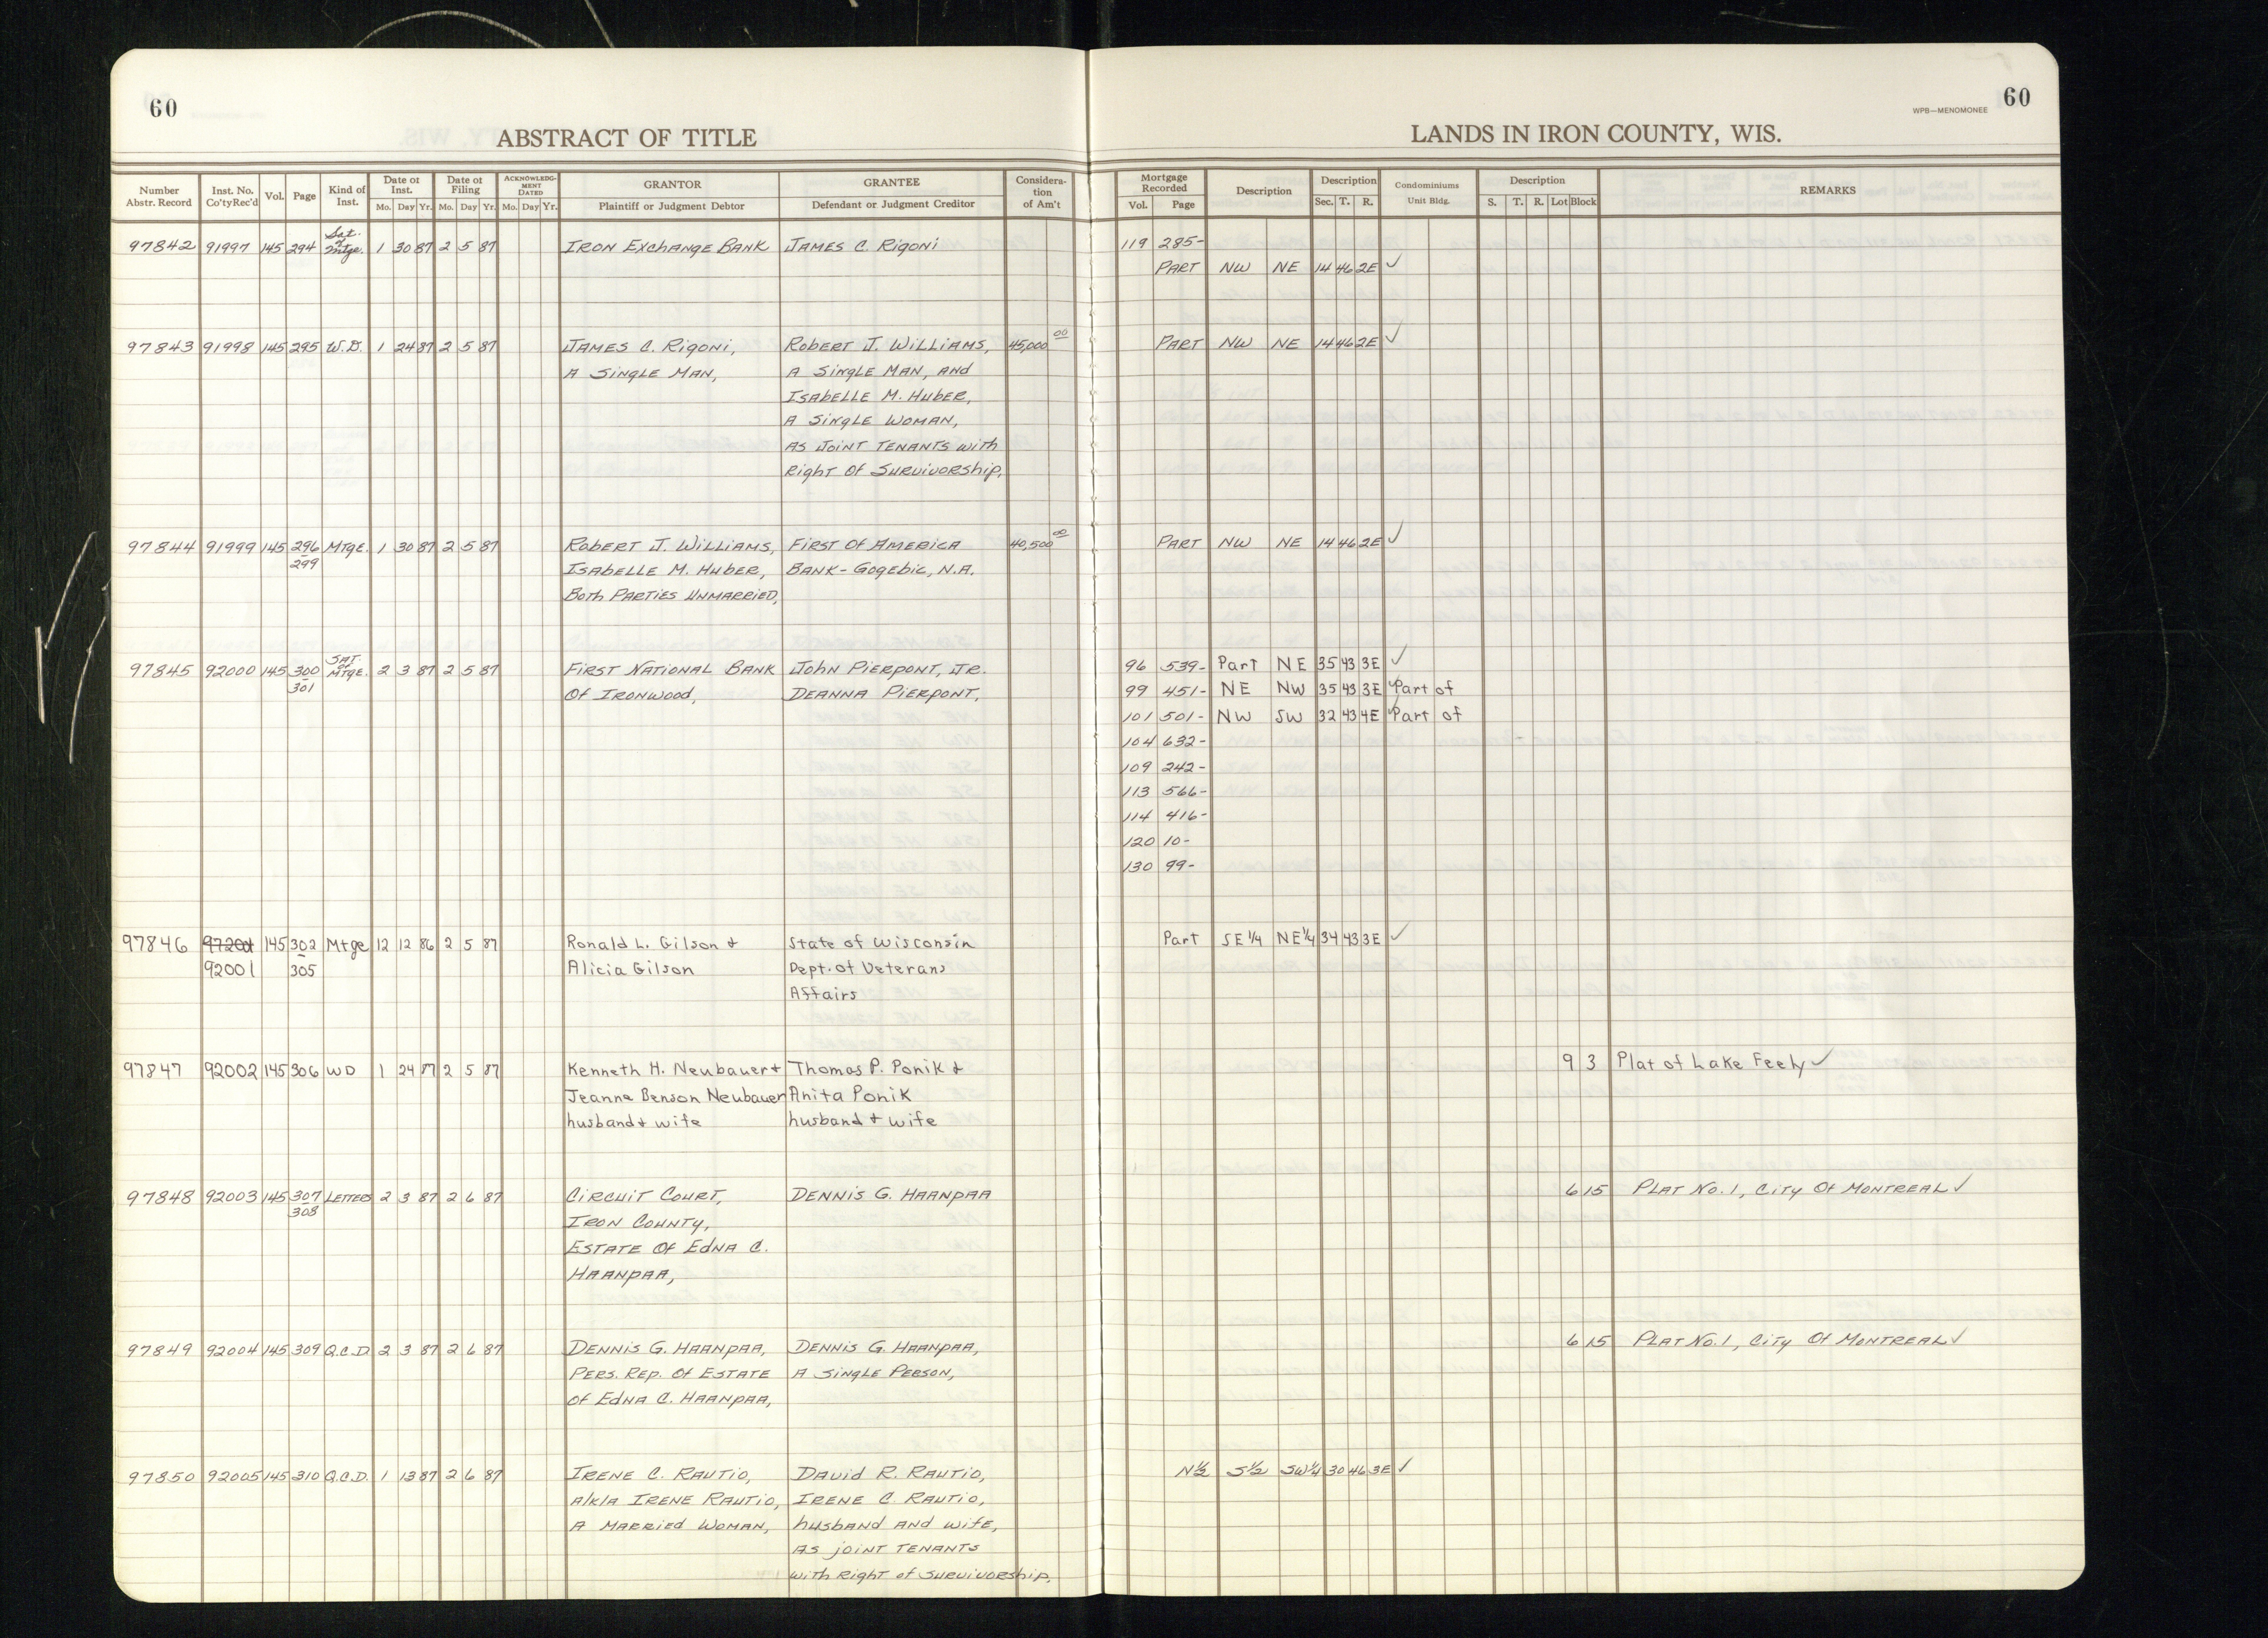 60
ABSTRACT OF TITLE
LANDS IN IRON COUNTY, WIS.
WPB—MENOMONEE 60
Number Abstr. Record Inst. No. Co'ty Rec'd Vol. Page Kind of Inst. Date of Inst. Mo. Day Yr. Date of Filing Mo. Day Yr. ACKNOWLEDGMENT DATED Mo. Day Yr. GRANTOR Plaintiff or Judgment Debtor GRANTEE Defendant or Judgment Creditor Consideration of Am't Mortgage Recorded Vol. Page Description Description Sec. T. R. Condominiums Unit Bldg. Description S. T. R. Lot Block REMARKS
97842 91997 145 294 Sat. of Mtge. 1 30 87 2 5 87 IRON EXCHANGE BANK JAMES C. RIGONI 119 285-
PART NW NE 14 46 2E ✓
97843 91998 145 295 W.D. 1 24 87 2 5 87 JAMES C. RIGONI, ROBERT J. WILLIAMS, 45,000.00 PART NW NE 14 46 2E ✓
A SINGLE MAN, A SINGLE MAN, AND
ISABELLE M. HUBER,
A SINGLE WOMAN,
AS JOINT TENANTS WITH
RIGHT OF SURVIVORSHIP,
97844 91999 145 296 - 299 MTGE. 1 30 87 2 5 87 ROBERT J. WILLIAMS, FIRST OF AMERICA 40,500.00 PART NW NE 14 46 2E ✓
ISABELLE M. HUBER, BANK-GOGEBIC, N.A.
BOTH PARTIES UNMARRIED,
97845 92000 145 300 - 301 SAT. OF MTGE. 2 3 87 2 5 87 FIRST NATIONAL BANK JOHN PIERPONT, JR. 96 539- Part NE 35 43 3E ✓
OF IRONWOOD, DEANNA PIERPONT, 99 451- NE NW 35 43 3E ✓Part of
101 501- NW SW 32 43 4E ✓Part of
104 632-
109 242-
113 566-
114 416-
120 10-
130 99-
97846 97201 145 302 Mtge 12 12 86 2 5 87 Ronald L. Gilson + State of Wisconsin Part SE 1/4 NE 1/4 34 43 3E ✓
92001 - 305 Alicia Gilson Dept. of Veterans
Affairs
97847 92002 145 306 WD 1 24 87 2 5 87 Kenneth H. Neubauer + Thomas P. Ponik + 9 3 Plat of Lake Feely ✓
Jeanne Benson Neubauer Anita Ponik
husband + wife husband + wife
97848 92003 145 307 308 LETTERS 2 3 87 2 6 87 CIRCUIT COURT, DENNIS G. HAANPAA 6 15 PLAT NO. 1, CITY OF MONTREAL ✓
IRON COUNTY,
ESTATE OF EDNA C.
HAANPAA,
97849 92004 145 309 Q.C.D. 2 3 87 2 6 87 DENNIS G. HAANPAA, DENNIS G. HAANPAA, 6 15 PLAT NO. 1, CITY OF MONTREAL ✓
PERS. REP. OF ESTATE A SINGLE PERSON,
OF EDNA C. HAANPAA,
97850 92005 145 310 Q.C.D. 1 13 87 2 6 87 IRENE C. RAUTIO, DAVID R. RAUTIO, N 1/2 S 1/2 SW 1/4 30 46 3E ✓
A/K/A IRENE RAUTIO, IRENE C. RAUTIO,
A MARRIED WOMAN, HUSBAND AND WIFE,
AS JOINT TENANTS
WITH RIGHT OF SURVIVORSHIP,